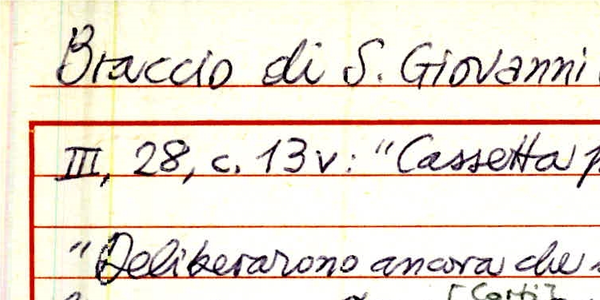 Braccio di S. Giovanni
III, 28, c. 13v: "Cassetta
"Deliberarono ancora che
[Corti]